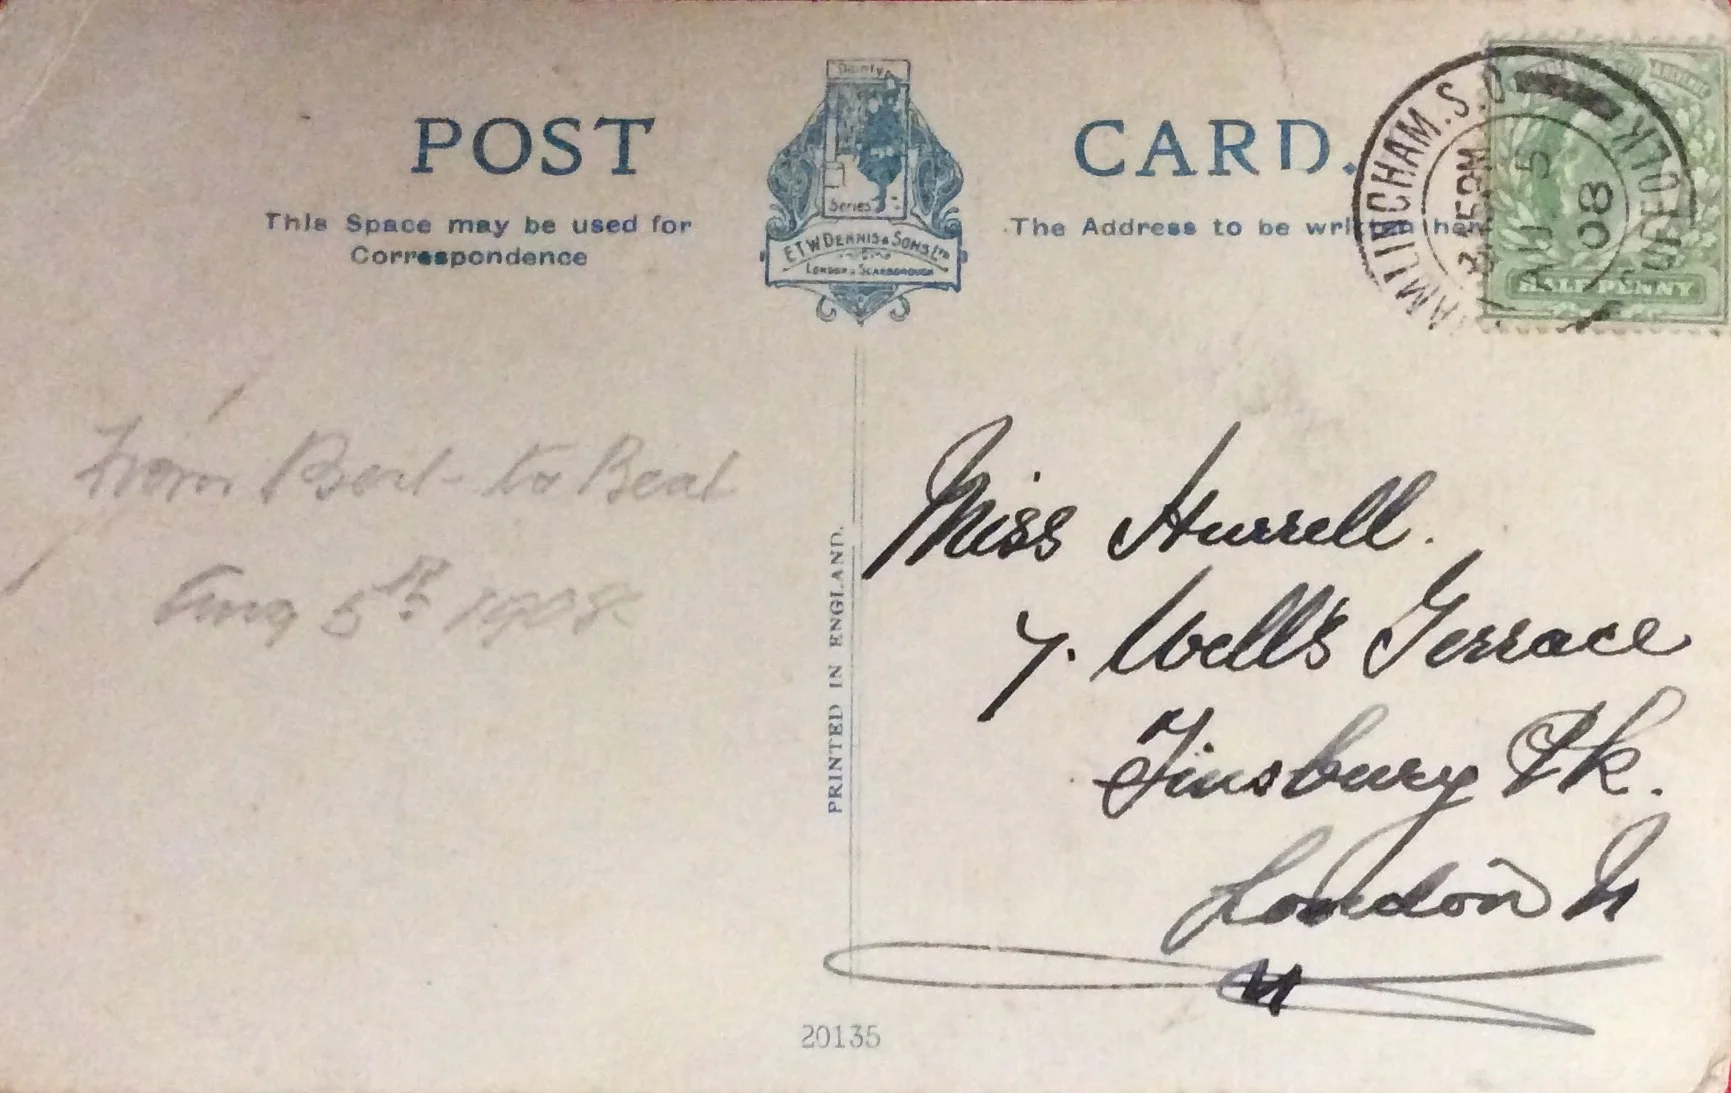 POST CARD.
This Space may be used for
Correspondence
The Address to be written here
Dainty
Series
E.T.W. DENNIS & SONS LTD
LONDON & SCARBOROUGH
FRAMLINGHAM. S.O.
SUFFOLK
AU 5
08
HALF PENNY
From Bert - to Beat
Aug 5th 1908.
PRINTED IN ENGLAND.
Miss Hurrell.
7. Well's Terrace
Finsbury Pk.
London N
N
20135